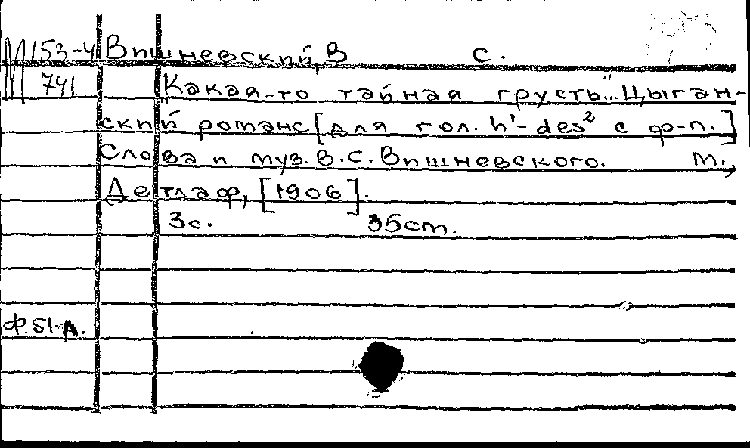 М153-4 Вишневский, В С.
741 Какая-то тайная грусть... Цыган-
ский романс [для гол. h¹-des² с ф-п.]
Слова и муз. В.С. Вишневского. М.,
Детлаф, [1906].
3с. 35см.
Ф.51-А.